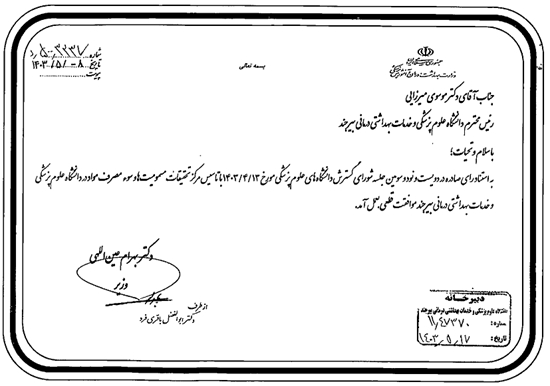 جمهوری اسلامی ایران
وزارت بهداشت، درمان و آموزش پزشکی
بسمه تعالی
شماره ۵۰۰/۳۲۳۷/د
تاریخ ۱۴۰۳/۵/۰۸
پیوست
جناب آقای دکتر موسوی میرزایی
رئیس محترم دانشگاه علوم پزشکی و خدمات بهداشتی درمانی بیرجند
با سلام و تحیات؛
به استناد رای صادره در دویست و نود و سومین جلسه شورای گسترش دانشگاه‌های علوم پزشکی مورخ ۱۴۰۳/۴/۱۳ با تاسیس مرکز تحقیقات مسمومیت‌ها و سوء مصرف مواد در دانشگاه علوم پزشکی
و خدمات بهداشتی درمانی بیرجند موافقت قطعی بعمل آمد.
دکتر بهرام عین اللهی
وزیر
از طرف
دکتر ابوالفضل باقری فرد
دبیرخانه
دانشگاه علوم پزشکی و خدمات بهداشتی درمانی بیرجند
شماره: ۱۱/۴۷۳۷۰
تاریخ: ۱۴۰۳/۵/۱۷